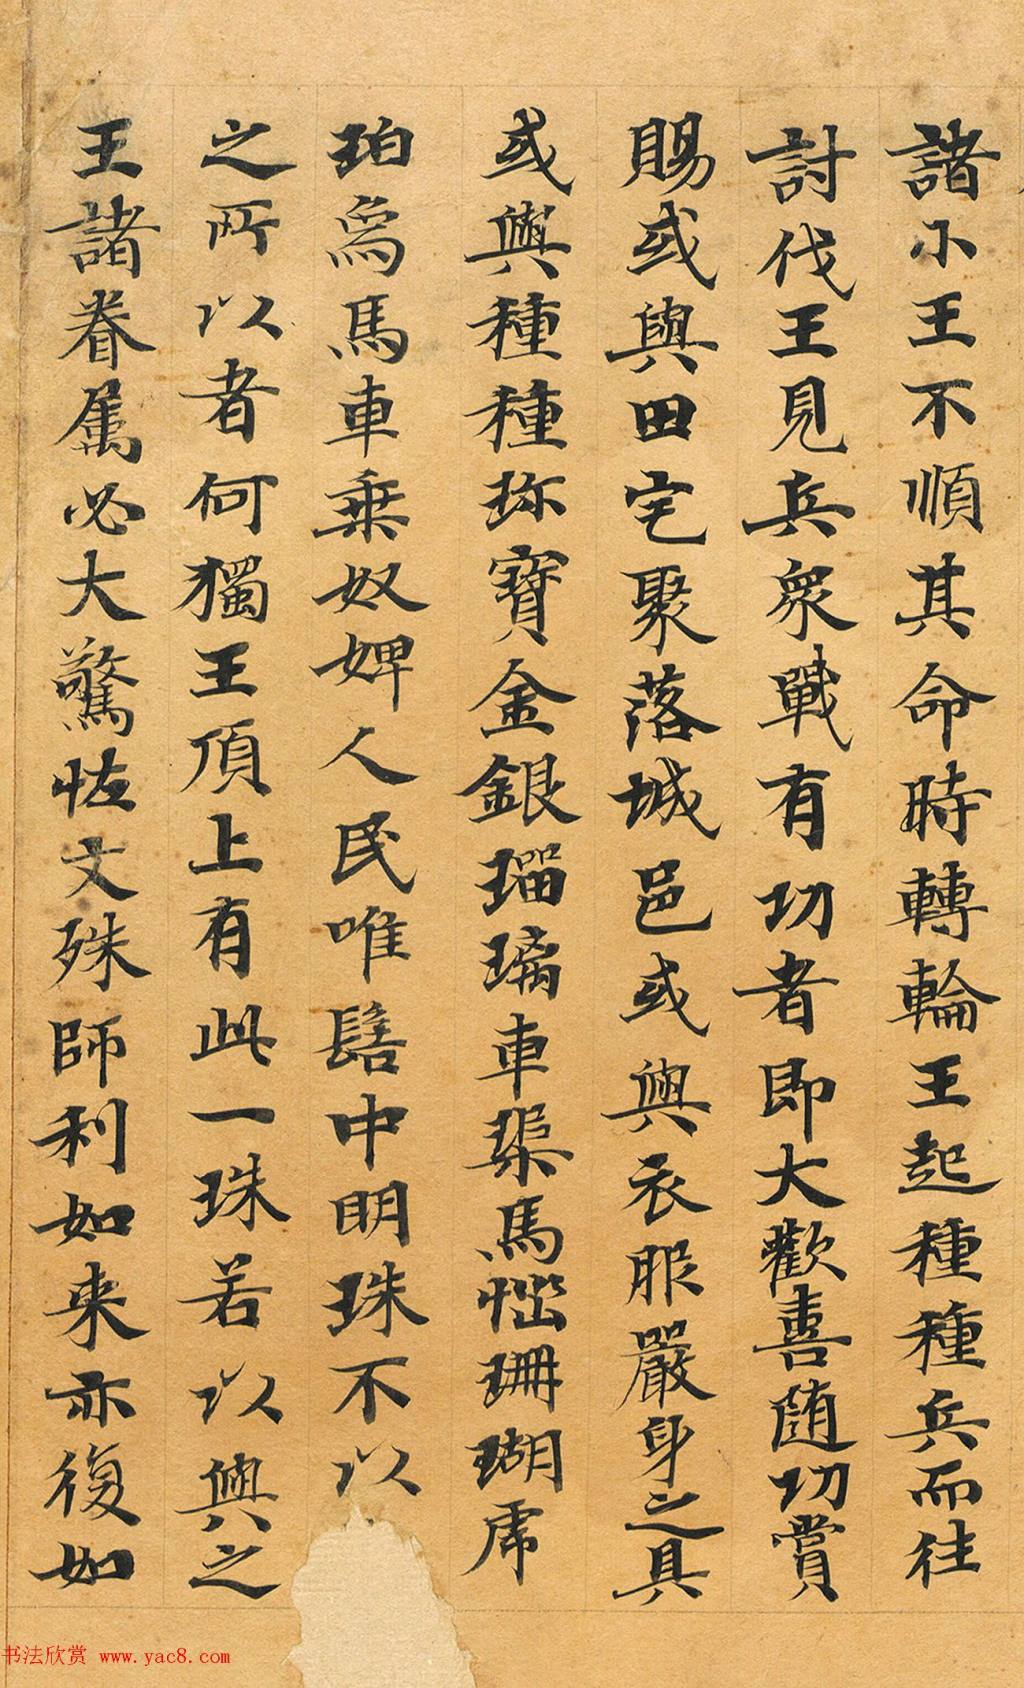 諸小王不順其命時轉輪王起種種兵而往
討伐王見兵衆戰有功者即大歡喜随功賞
賜或與田宅聚落城邑或與衣服嚴身之具
或與種種珎寶金銀瑠璃車𤦲馬㻔珊瑚虎
珀為馬車乗奴婢人民唯髻中明珠不以
之所以者何獨王頂上有此一珠若以與之
王諸眷属必大驚恠文殊師利如来亦復如
书法欣赏 www.yac8.com